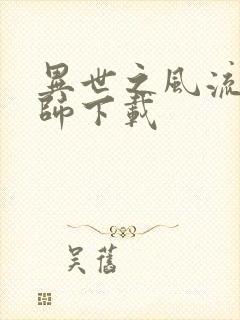 異世之風流
師下載
吴舊